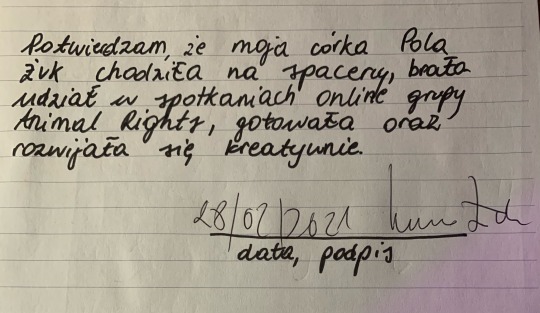 Potwierdzam, że moja córka Pola
Żuk chodziła na spacery, brała
udział w spotkaniach online grupy
Animal Rights, gotowała oraz
rozwijała się kreatywnie.
28/02/2021
data, podpis